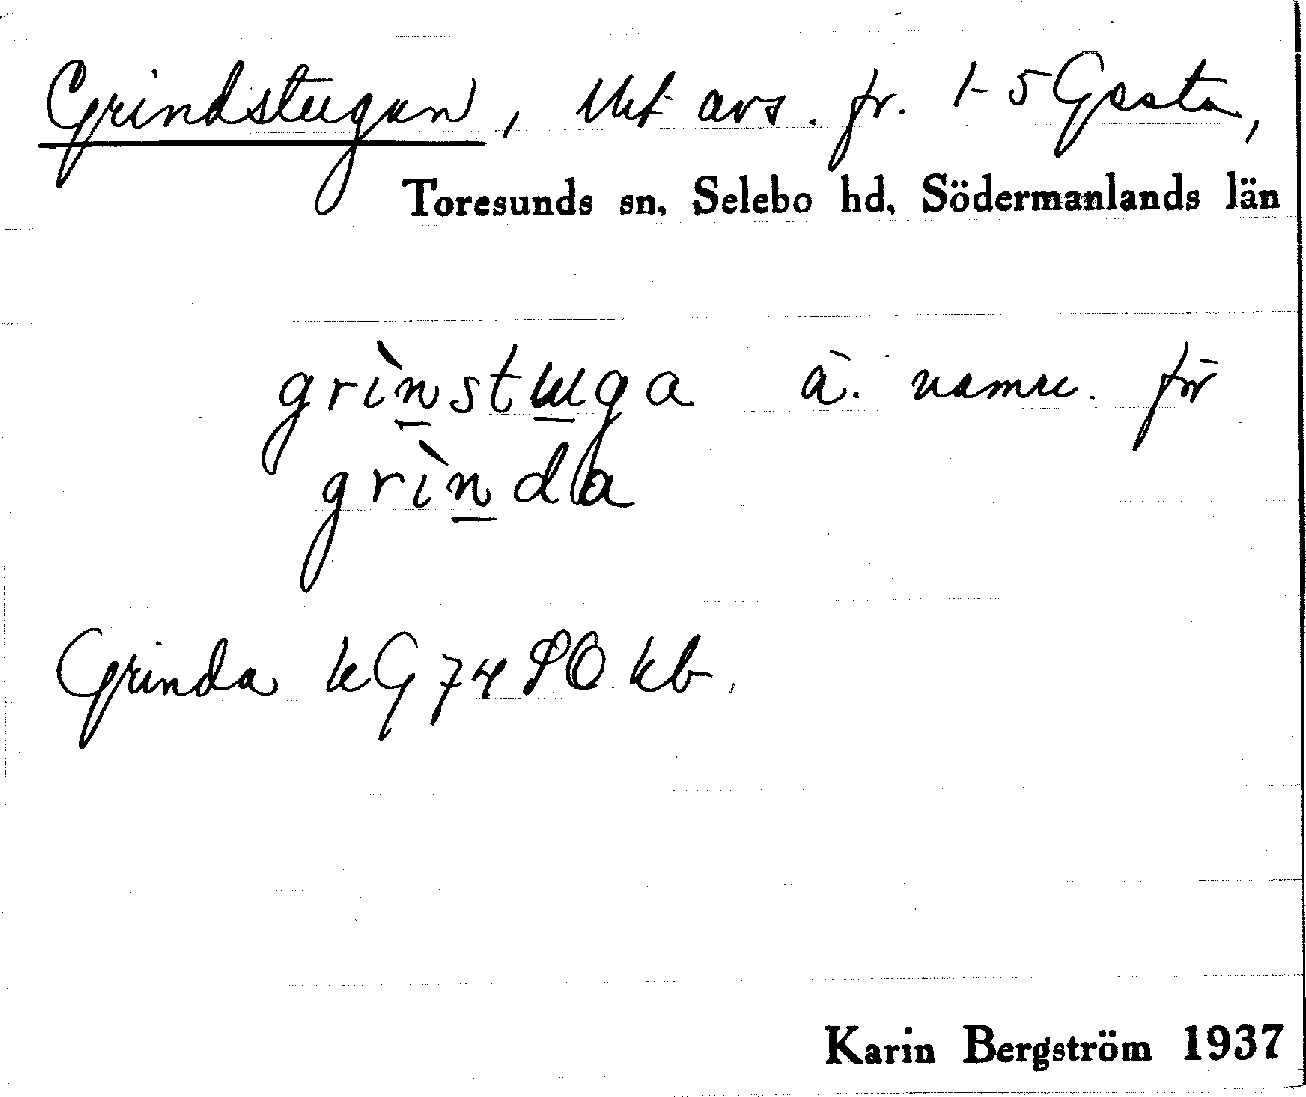 Grindstugan, lht avs. fr. 1-5 Gösta,
Toresunds sn, Selebo hd, Södermanlands län
grìnstuga ä. namn. för
grìnda
Grinda kG 74 SO kb.
Karin Bergström 1937